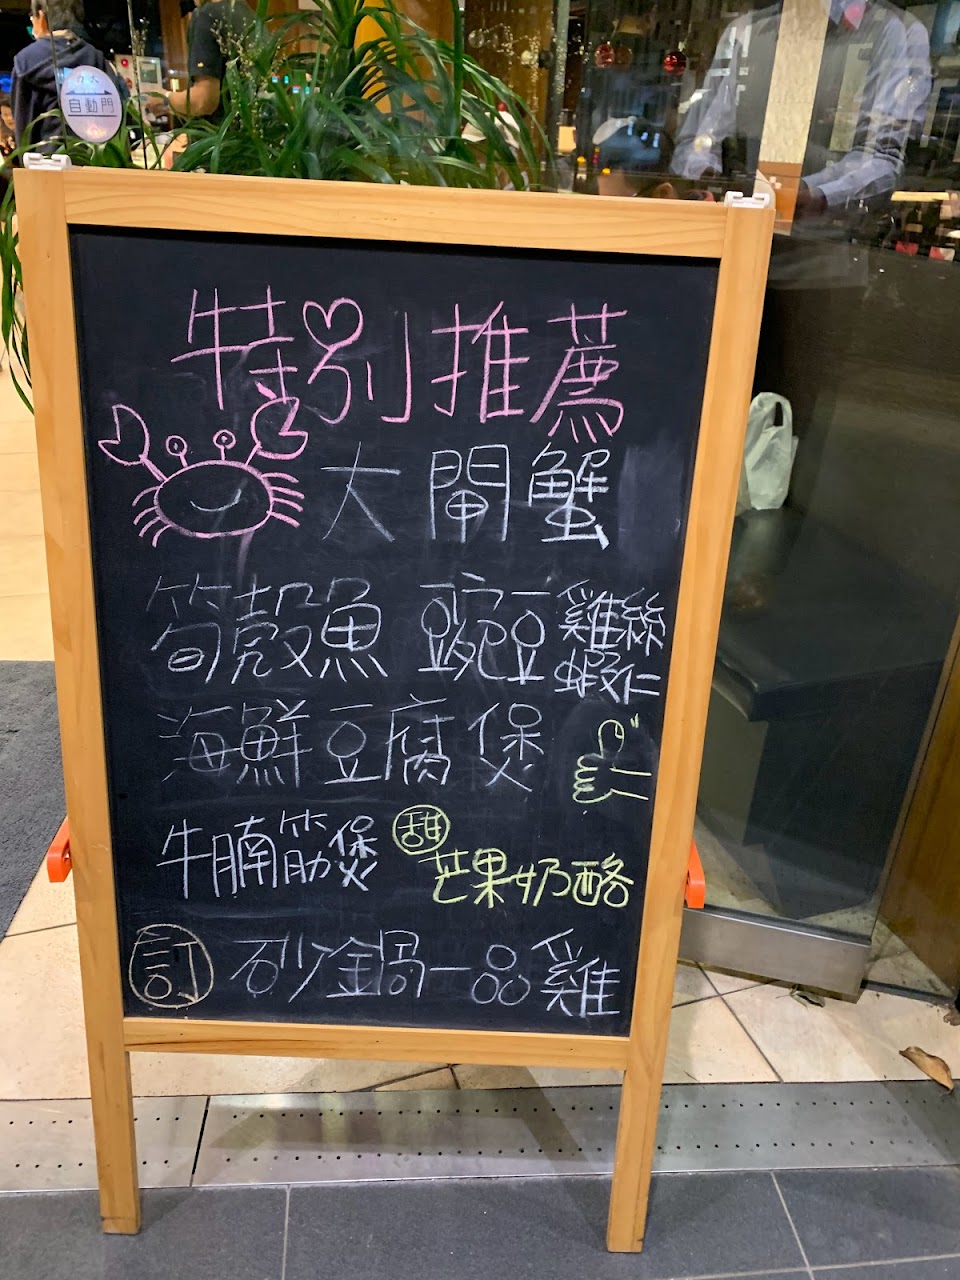 自動門
特別推薦
大閘蟹
筍殼魚 豌豆雞絲蝦仁
海鮮豆腐煲
牛腩筋煲 甜 芒果奶酪
訂 砂鍋一品雞